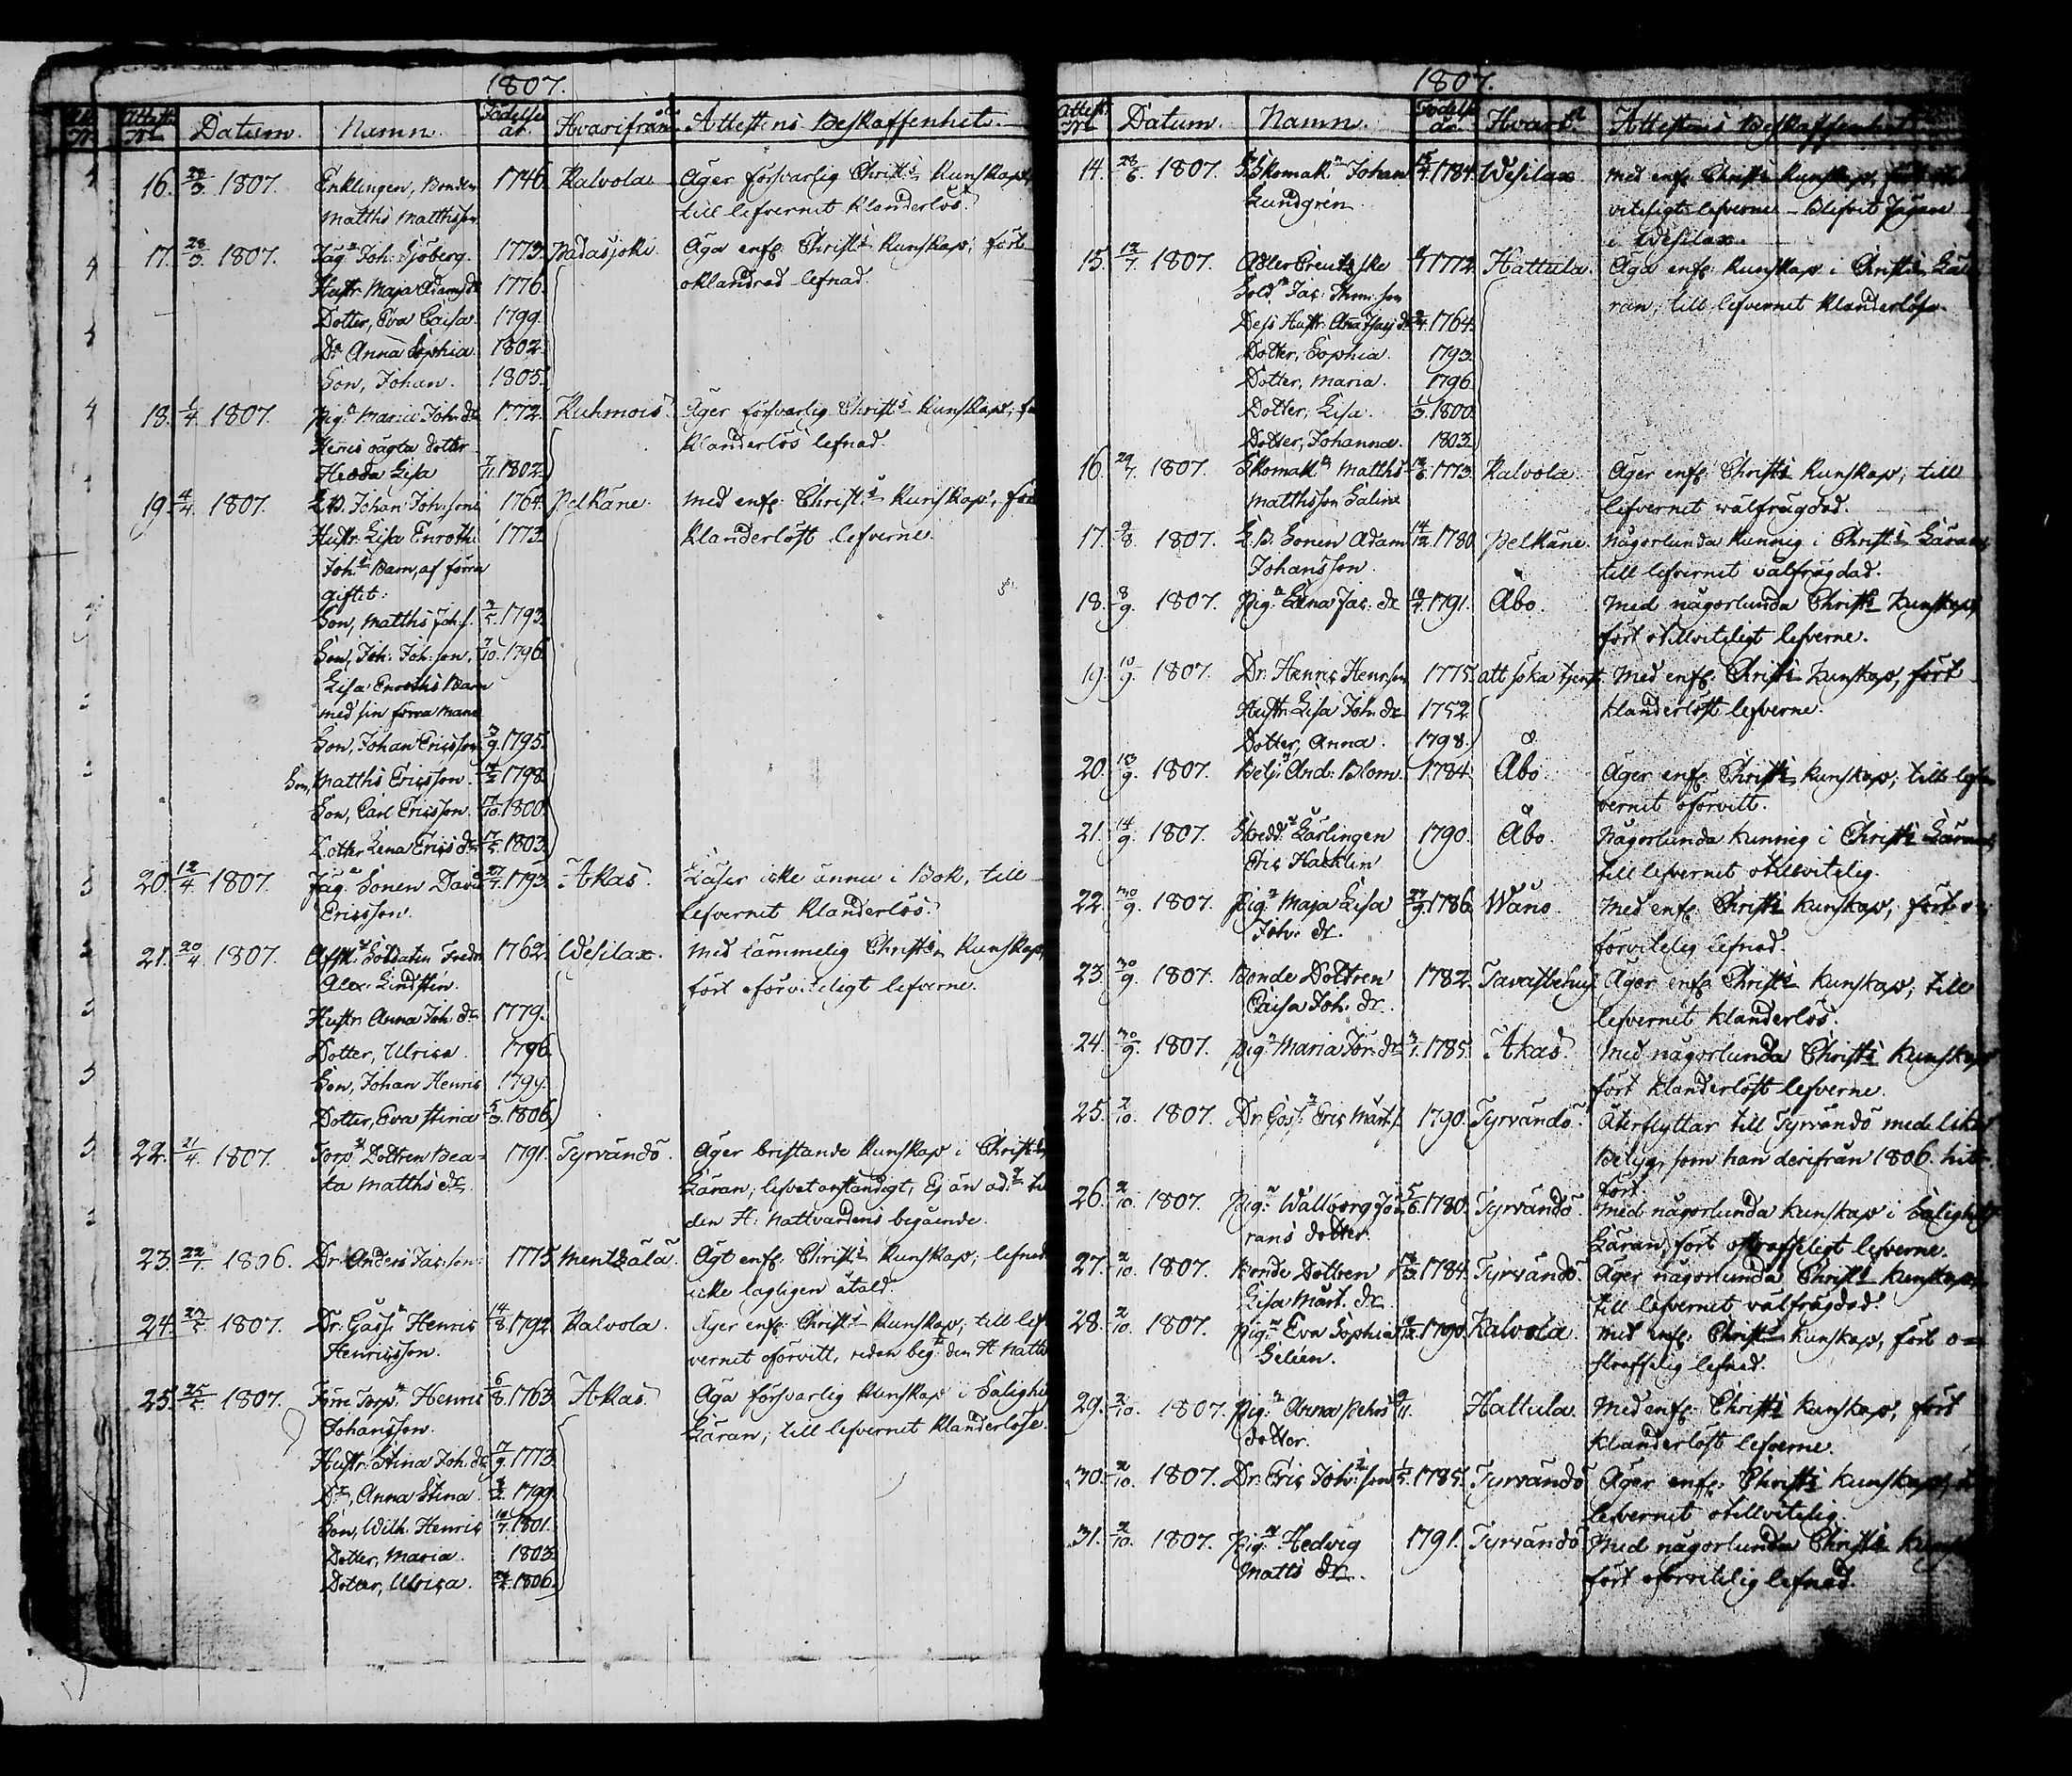 1807.
Attest. No Datum. Namn. Födelse år Hvarifrån Attestens Beskaffenhet.
16. 1807. Enklingen, Bonden 1746. Kalvola Äger försvarlig Christ:s Kunskap,
Matths Matthsson till lefvernet klanderlös.
17. 28/3. 1807. Jäg:n Joh: Sjöberg. 1773. Padasjoki. Äga enf: Christ:s Kunskap; fört
Hustr. Maja Adamsdr 1776. oklandrad lefnad.
Dotter, Eva Caisa. 1799.
Dr Anna Sophia 1802.
Son, Johan. 1805.
18. 1/4. 1807. Pig:n Maria Joh: dr 1772. Kuhmois. Äger försvarlig Christ:s Kunskap,
Hennes oägta dotter klanderlös lefnad.
Hedda Lisa 7/11. 1802.
19. 4/4. 1807. Johan Joh:son 1764. Pelkäne. Med enf: Christ:s Kunskap,
Hustr. Lisa Enroth 1773. klanderlöst lefverne.
Joh:s Barn, af förra
giftet:
Son, Matths Joh: s. 1793.
Son, Joh: Joh:son. 7/10. 1796.
Lisa Enroths Barn
med sin förra man
Son, Johan Ericsson 3/9. 1795.
Son, Matths Ericsson. 1798.
Son, Carl Ericsson. 1800.
Dotter Lena Erics dr 1803.
20. 12/4. 1807. Jäg:e Sonen David 1793. Akas. Läser icke ännu i Bok, till
Ericsson. lefvernet klanderlös.
21. 20/4. 1807. Afsk: Soldaten Fredr 1762. Wesilax. Med tämmelig Christ:s Kunskap,
Alex: Lindsten. fört oförviteligt lefverne.
Hustr. Anna Joh: dr 1779.
Dotter, Ulrica. 1796.
Son, Johan Henric 1799.
Dotter, Eva Stina 5/3. 1806.
22. 21/4. 1807. Torp:n Dottren Bea- 1791. Tyrvändö. Äger bristande Kunskap i Christ:s
ta Matths dr. Läran; lefvat anständigt, Ej än
den H: Nattvardens begående.
23. 1806. Dr. Anders Jac:son. 1775. Mentzälä. Ägt enf: Christ:s Kunskap; lefnad
icke lagligen åtald.
24. 1807. Dr. Goss:n Henric 14/8. 1792. Kalvola. Äger enf: Christ:s Kunskap; till lef
Henricsson. vernet oförvitt, redan beg: den H. Nattv
25. 1807. Förre Torp:n Henric 6/8. 1763. Akas. Äga försvarlig Kunskap i Salighe
Johansson. Läran; till lefvernet klanderlöse.
Hustr. Stina Joh: dr 7/9. 1773.
Dr, Anna Stina. 1799.
Son, Wilh. Henric 1801.
Dotter, Maria. 1803.
Dotter, Ulrica. 1806.
1807.
Attest No Datum. Namn. Födelse år. Hvart Attestens Beskaffenhet
14. 28/6. 1807. Skomak:n Johan 1784. Wesilax Med enf: Christ:s Kunskap,
Lundgrén viteligt lefverne. Blifvit Jägare
i Wesilax.
15. 12/7. 1807. Adler Creutzske 1772. Hattula. Äga enf: Kunskap i Christ:s Lä
Sold:n Jac: Thom:son ran; till lefvernet klanderlöse.
Dess Hustr. Anna Isacs dr 1764.
Dotter, Sophia. 1793.
Dotter, Maria. 1796.
Dotter, Lisa. 1800.
Dotter, Johanna. 1803.
16. 29/7. 1807. Skomak:n Matths 1773. Kalvola. Äger enf: Christ:s Kunskap; till
Matthsson Salin lefvernet välfrägdad.
17. 1807. Sonen Adam 14/12. 1780. Pelkäne. Någorlunda kunnig i Christ:s Läran,
Johansson. till lefvernet välfrägdad.
18. 8/9. 1807. Pig:n Jac: dr 1791. Åbo. Med någorlunda Christ:s Kunskap,
fört otillviteligt lefverne.
19. 10/9. 1807. Dr. Henric Henr:son 1775. att söka tjenst. Med enf: Christ:s Kunskap, fört
Hustr. Lisa Joh: dr 1752. klanderlöst lefverne.
Dotter, Anna. 1798.
20. 13/9. 1807. And: Blom. 1784. Åbo Äger enf: Christ:s Kunskap; till lef
vernet oförvitt.
21. 14/9. 1807. Skredd: Lärlingen 1790. Åbo. Någorlunda kunnig i Christ:s Läran
Eric Hacklin till lefvernet otillvitelig.
22. 30/9. 1807. Pig:n Maja Lisa 1786. Wåno. Med enf: Christ:s Kunskap, fört o
Joh: dr. förvitelig lefnad.
23. 30/9. 1807. Bonde Dottren 1782. Tavastehus. Äger enf: Christ:s Kunskap, till
Caisa Joh: dr. lefvernet klanderlös.
24. 30/9. 1807. Pig:n Maria Jör: dr 1785. Akas. Med någorlunda Christ:s Kunskap
fört klanderlöst lefverne.
25. 2/10. 1807. Dr. Goss:n Eric Märt: s. 1790. Tyrvändö. Återflyttar till Tyrvändö med lika
Betyg, som han derifrån 1806. hit
fört
26. 2/10. 1807. Pig:n Wallborg Jö 1780. Tyrvändö. Med någorlunda Kunskap i Salighets
rans dotter. Läran, fört ostraffeligt lefverne.
27. 2/10. 1807. Bonde Dottren 1784. Tyrvändö. Äger någorlunda Christ:s Kunskap,
Lisa Märt. dr. till lefvernet välfrägdad.
28. 2/10. 1807. Pig:n Eva Sophia 1790. Kalvola. Med enf: Christ:s Kunskap, fört o=
Selen. straffelig lefnad.
29. 2/10. 1807. Pig:n Anna Pehrs 9/11. Hattula. Med enf: Christ:s Kunskap, fört
dotter. klanderlöst lefverne.
30. 2/10. 1807. Dr. Eric Joh:son 1785. Tyrvändö Äger enf: Christ:s Kunskap,
lefvernet otillvitelig.
31. 2/10. 1807. Pig:n Hedvig 1791. Tyrvändö Med någorlunda Christ:s Kunsk
Matts dr. fört oförvitelig lefnad.